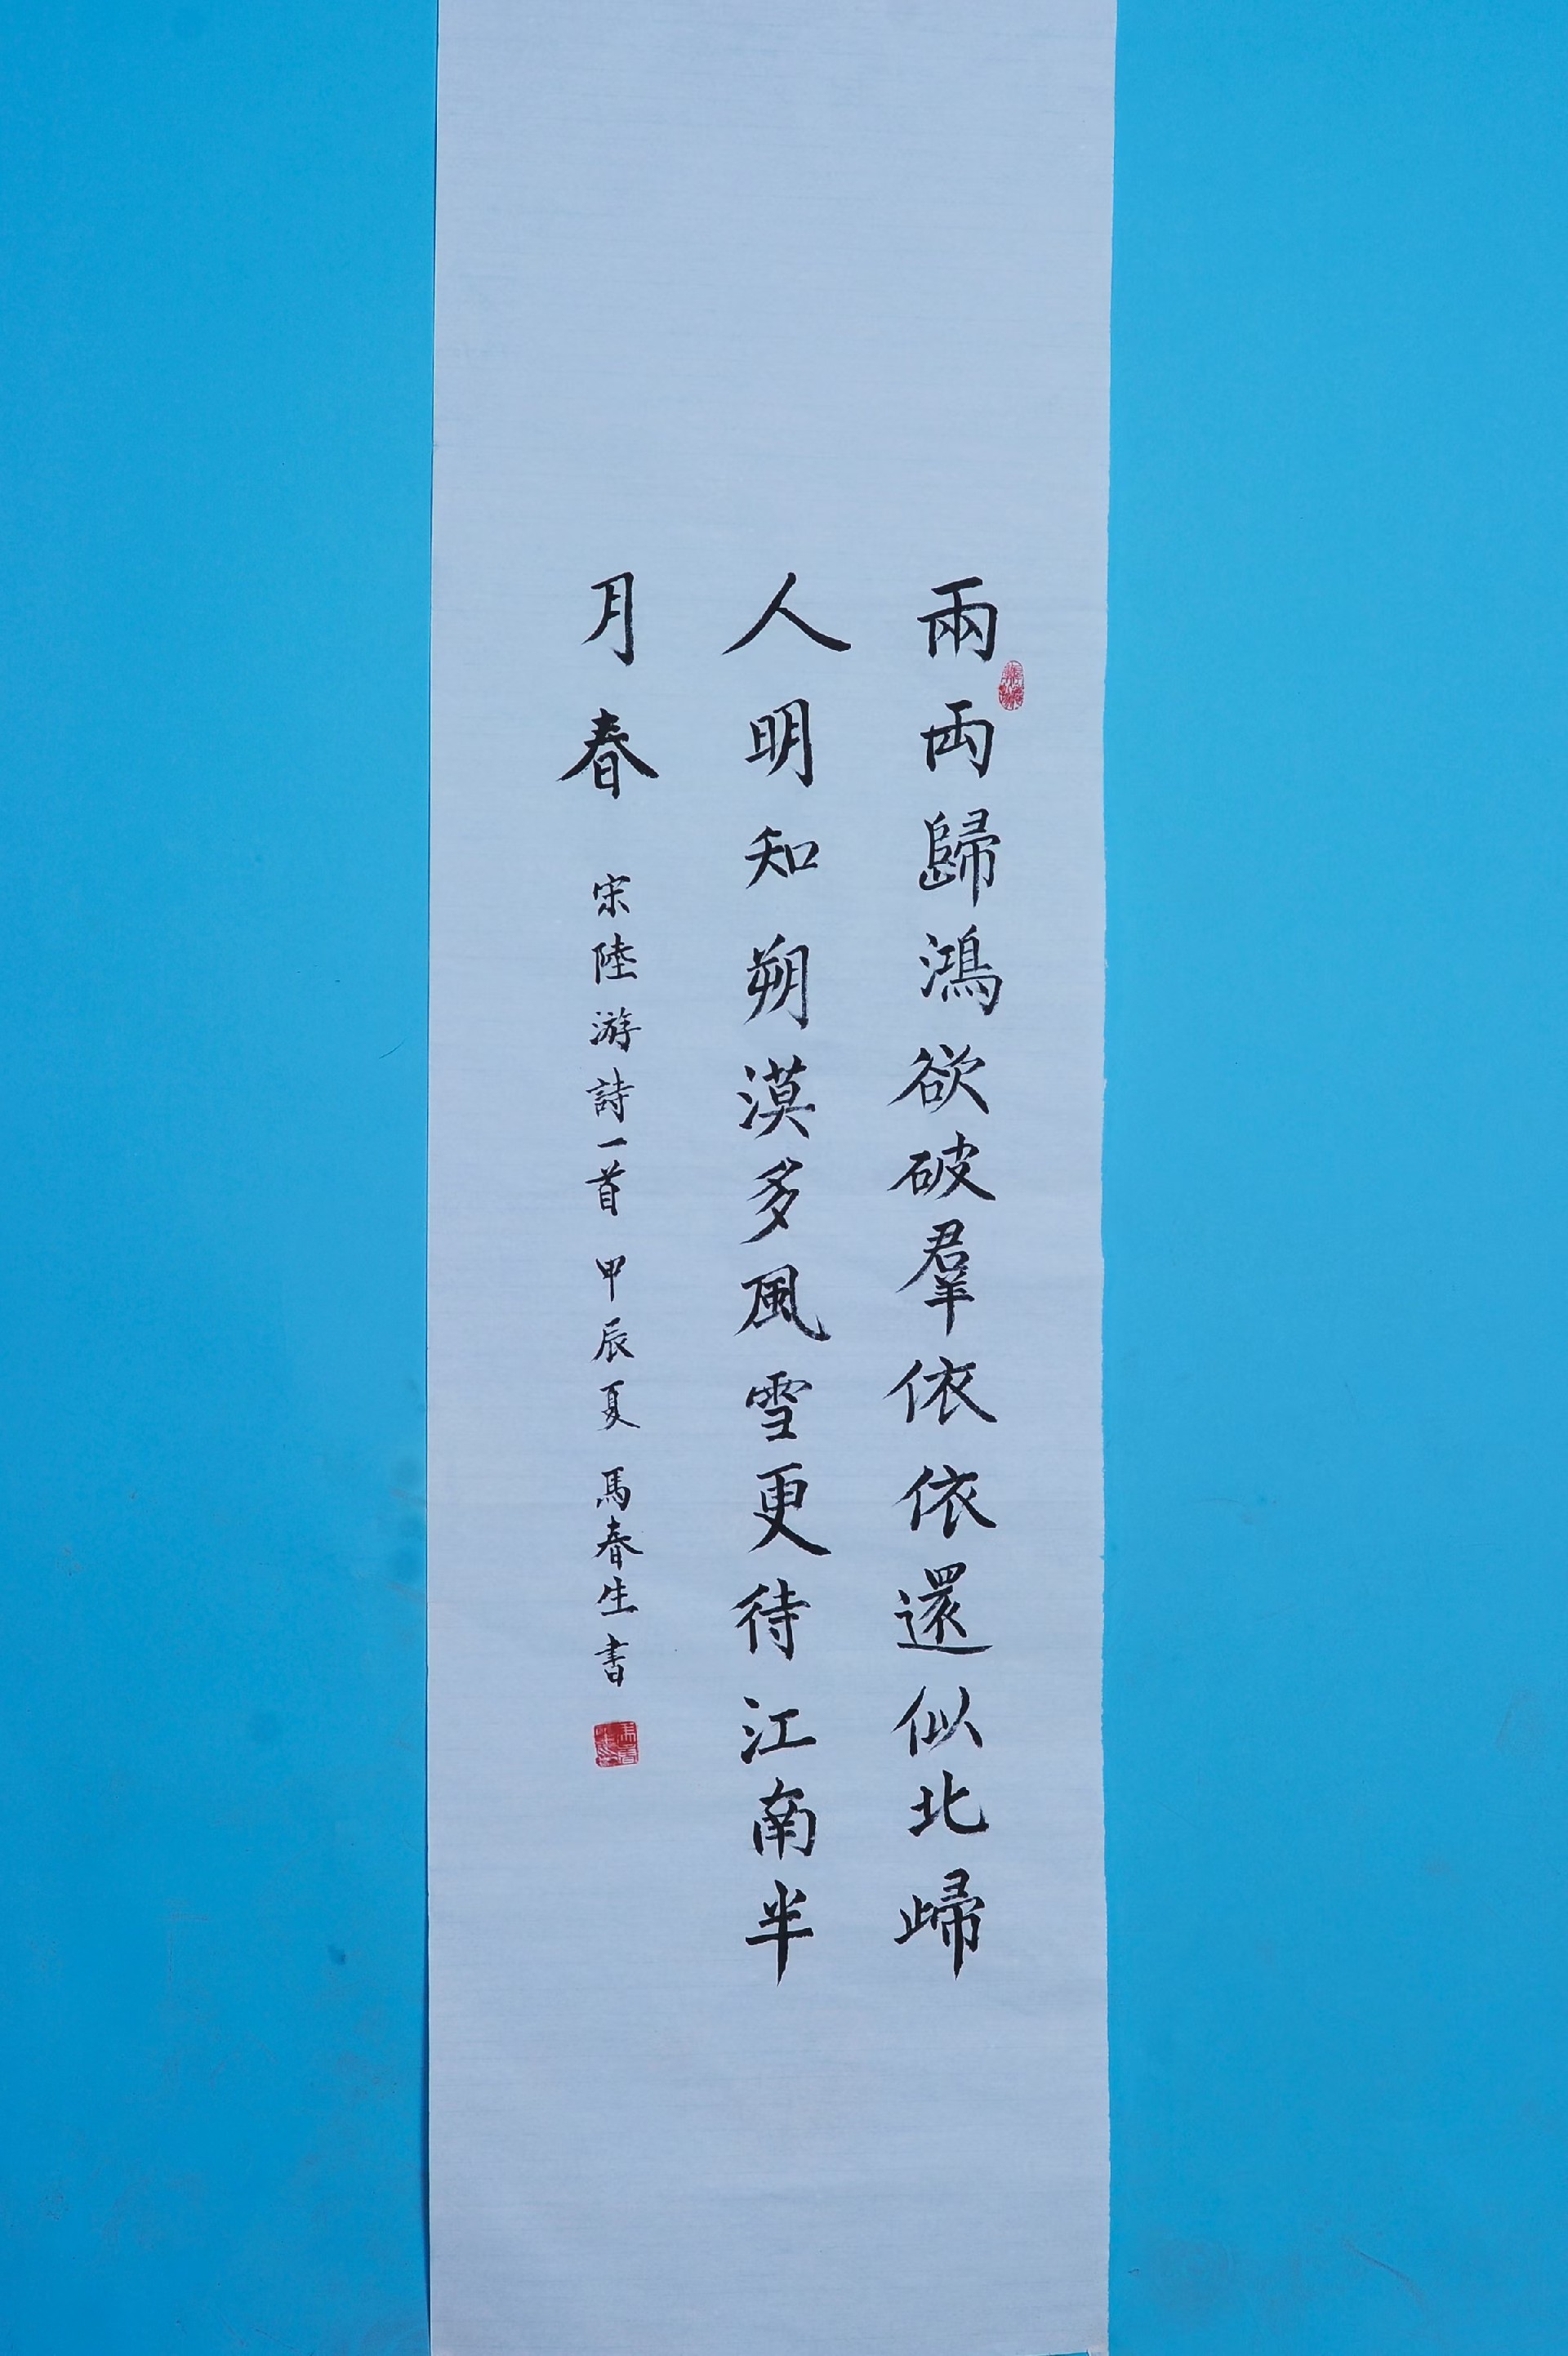 兩両歸鴻欲破羣依依還似北歸
人明知朔漠多風雪更待江南半
月春
宋陸游詩一首 甲辰夏 馬春生书